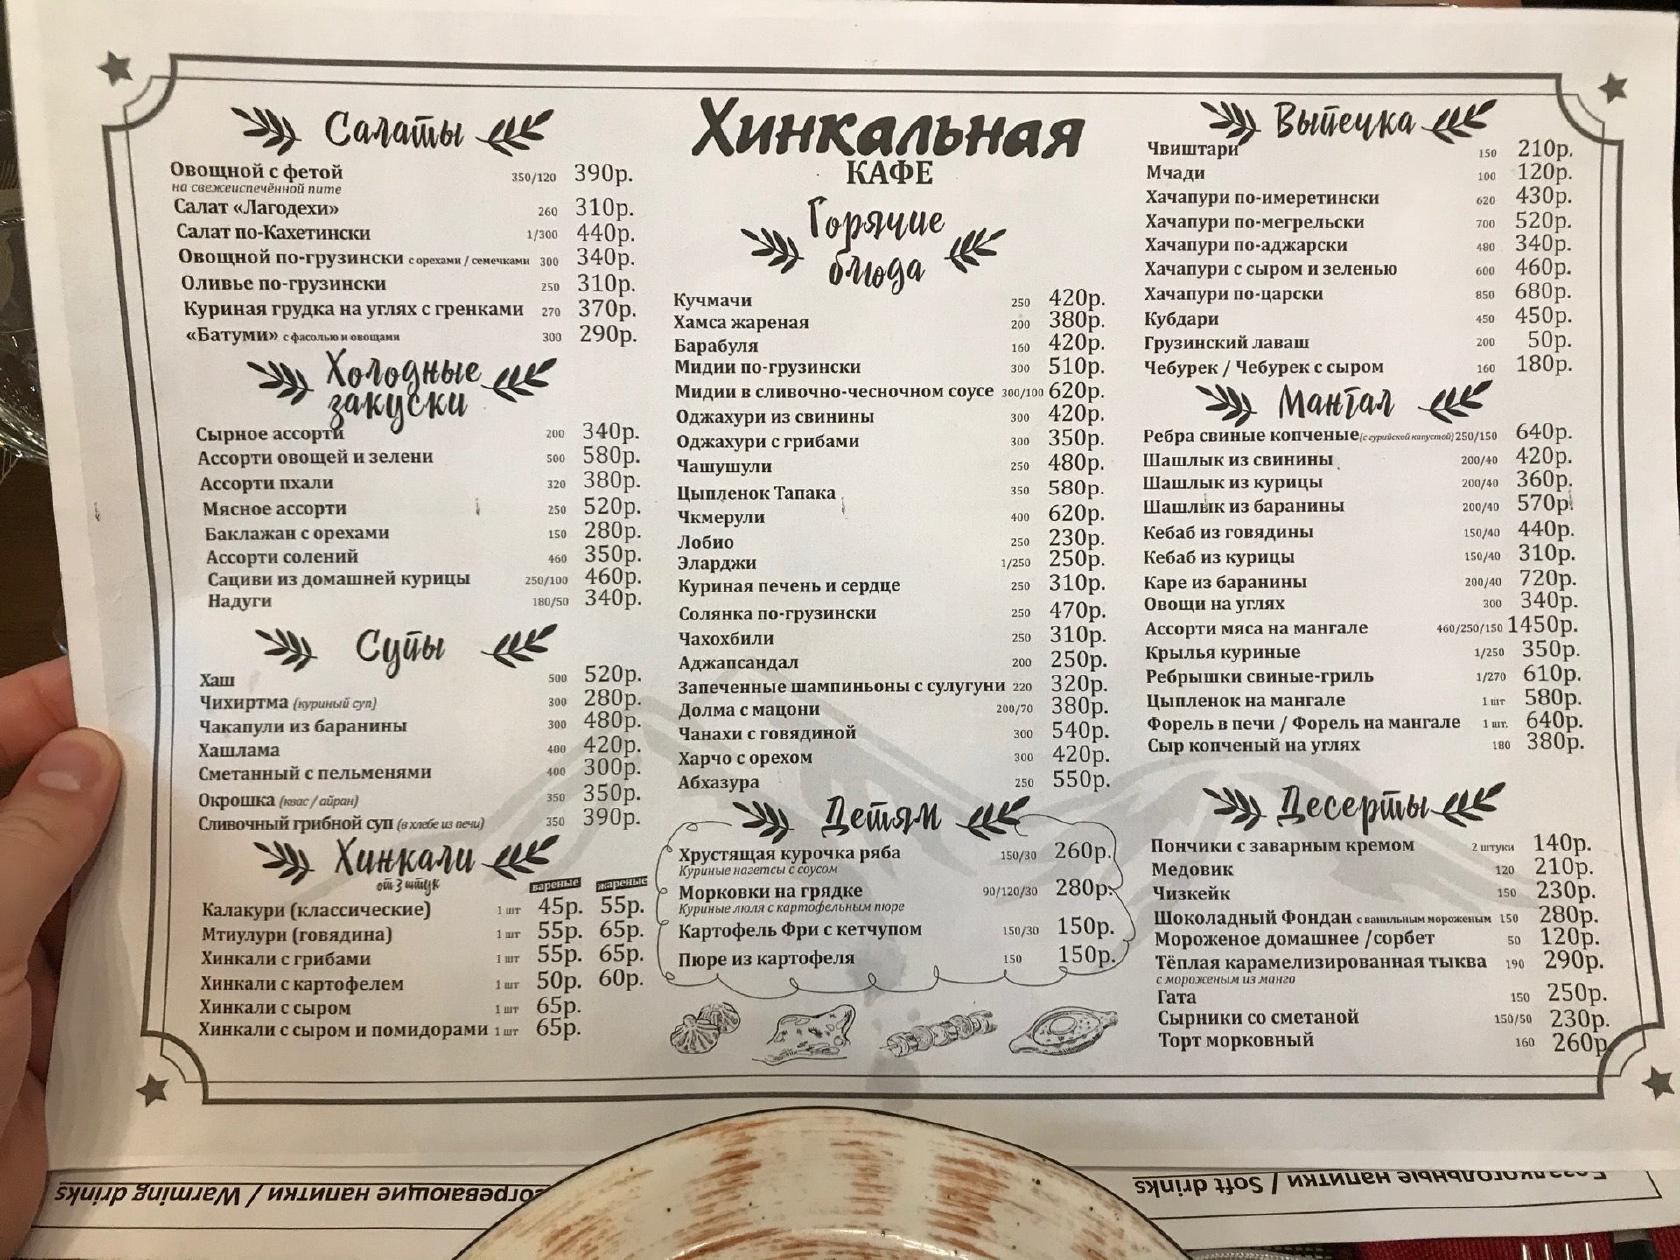 Салаты
Овощной с фетой 350/120 390р.
на свежеиспечённой пите
Салат «Лагодехи» 260 310р.
Салат по-Кахетински 1/300 440р.
Овощной по-грузински с орехами / семечками 300 340р.
Оливье по-грузински 250 310р.
Куриная грудка на углях с гренками 270 370р.
«Батуми» с фасолью и овощами 300 290р.
Холодные
закуски
Сырное ассорти 200 340р.
Ассорти овощей и зелени 500 580р.
Ассорти пхали 320 380р.
Мясное ассорти 250 520р.
Баклажан с орехами 150 280р.
Ассорти солений 460 350р.
Сациви из домашней курицы 250/100 460р.
Надуги 180/50 340р.
Супы
Хаш 500 520р.
Чихиртма (куриный суп) 300 280р.
Чакапули из баранины 300 480р.
Хашлама 400 420р.
Сметанный с пельменями 400 300р.
Окрошка (квас / айран) 350 350р.
Сливочный грибной суп (в хлебе из печи) 350 390р.
Хинкали
от 3 штук вареные жареные
Калакури (классические) 1 шт 45р. 55р.
Мтиулури (говядина) 1 шт 55р. 65р.
Хинкали с грибами 1 шт 55р. 65р.
Хинкали с картофелем 1 шт 50р. 60р.
Хинкали с сыром 1 шт 65р.
Хинкали с сыром и помидорами 1 шт 65р.
Хинкальная
КАФЕ
Горячие
блюда
Кучмачи 250 420р.
Хамса жареная 200 380р.
Барабуля 160 420р.
Мидии по-грузински 300 510р.
Мидии в сливочно-чесночном соусе 300/100 620р.
Оджахури из свинины 300 420р.
Оджахури с грибами 300 350р.
Чашушули 250 480р.
Цыпленок Тапака 350 580р.
Чкмерули 400 620р.
Лобио 250 230р.
Эларджи 1/250 250р.
Куриная печень и сердце 250 310р.
Солянка по-грузински 250 470р.
Чахохбили 250 310р.
Аджапсандал 200 250р.
Запеченные шампиньоны с сулугуни 220 320р.
Долма с мацони 200/70 380р.
Чанахи с говядиной 300 540р.
Харчо с орехом 300 420р.
Абхазура 250 550р.
Детям
Хрустящая курочка ряба 150/30 260р.
Куриные нагетсы с соусом
Морковки на грядке 90/120/30 280р.
Куриные люля с картофельным пюре
Картофель Фри с кетчупом 150/30 150р.
Пюре из картофеля 150 150р.
Выпечка
Чвиштари 150 210р.
Мчади 100 120р.
Хачапури по-имеретински 620 430р.
Хачапури по-мегрельски 700 520р.
Хачапури по-аджарски 480 340р.
Хачапури с сыром и зеленью 600 460р.
Хачапури по-царски 850 680р.
Кубдари 450 450р.
Грузинский лаваш 200 50р.
Чебурек / Чебурек с сыром 160 180р.
Мангал
Ребра свиные копченые (с гурийской капустой) 250/150 640р.
Шашлык из свинины 200/40 420р.
Шашлык из курицы 200/40 360р.
Шашлык из баранины 200/40 570р.
Кебаб из говядины 150/40 440р.
Кебаб из курицы 150/40 310р.
Каре из баранины 200/40 720р.
Овощи на углях 300 340р.
Ассорти мяса на мангале 460/250/150 1450р.
Крылья куриные 1/250 350р.
Ребрышки свиные-гриль 1/270 610р.
Цыпленок на мангале 1 шт 580р.
Форель в печи / Форель на мангале 1 шт. 640р.
Сыр копченый на углях 180 380р.
Десерты
Пончики с заварным кремом 2 штуки 140р.
Медовик 120 210р.
Чизкейк 150 230р.
Шоколадный Фондан с ванильным мороженым 150 280р.
Мороженое домашнее /сорбет 50 120р.
Тёплая карамелизированная тыква 190 290р.
с мороженым из манго
Гата 150 250р.
Сырники со сметаной 150/50 230р.
Торт морковный 160 260р
напитки / Warming drinks
напитки / Soft drinks